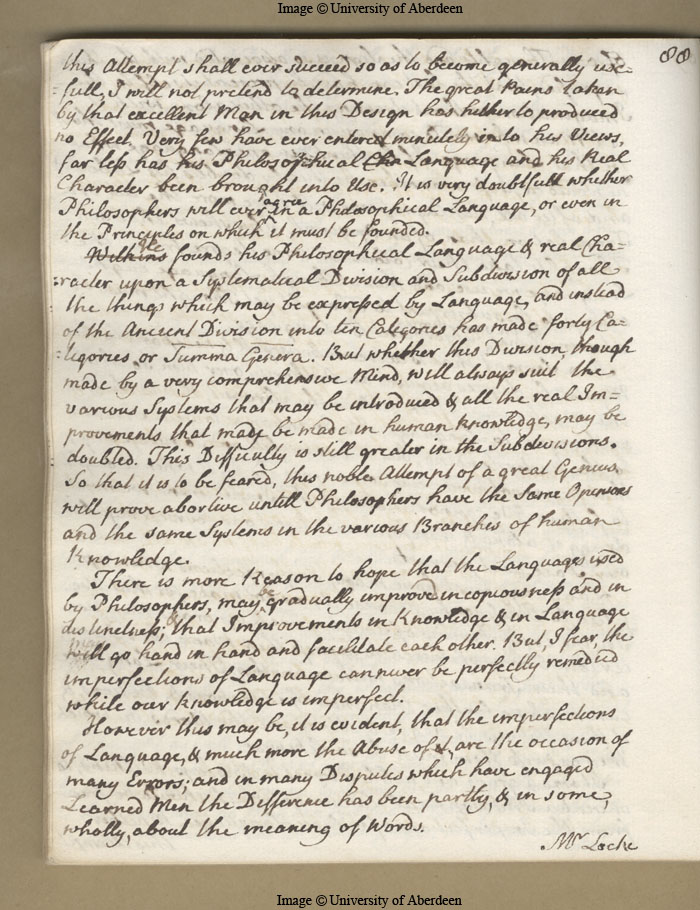 Image © University of Aberdeen
88
this Attempt shall ever succeed so as to become generally use-
full, I will not pretend to determine. The great Pains taken
by that excellent Man in this Design has hitherto produced
no Effect. Very few have ever entered minutely into his Views,
far less has his Philosophical Cha Language and his Real
Character been brought into Use. It is very doubtfull whether
Philosophers will ever agree in a Philosophical Language, or even in
the Principles on which it must be founded.
Wilkins He founds his Philosophical Language & real Cha-
racter upon a Systematical Division and Subdivision of all
the things which may be expressed by Language, and instead
of the Ancient Division into ten Categories has made forty Ca-
tegories or Summa Genera. But whether this Division though
made by a very comprehensive Mind, will always suit the
various Systems that may be introduced & all the real Im-
provements that made be made in human knowledge, may be
doubted. This Difficulty is still greater in the Subdivisions.
So that it is to be feared, this noble Attempt of a great Genius,
will prove abortive untill Philosophers have the same Opinions
and the same Systems in the various Branches of human
Knowledge.
There is more Reason to hope that the Languages used
by Philosophers, may be gradually improve in copiousness and in
distinctness; & that Improvements in Knowledge & in Language
will go hand in hand and facilitate each other. But, I fear, the
imperfections of Language can never be perfectly remedied
while our knowledge is imperfect.
However this may be, it is evident, that the imperfections
of Language, & much more the Abuse of it, are the occasion of
many Errors; and in many Disputes which have engaged
Learned Men the Difference has been partly, & in some,
wholly, about the meaning of Words.
Mr Locke
Image © University of Aberdeen